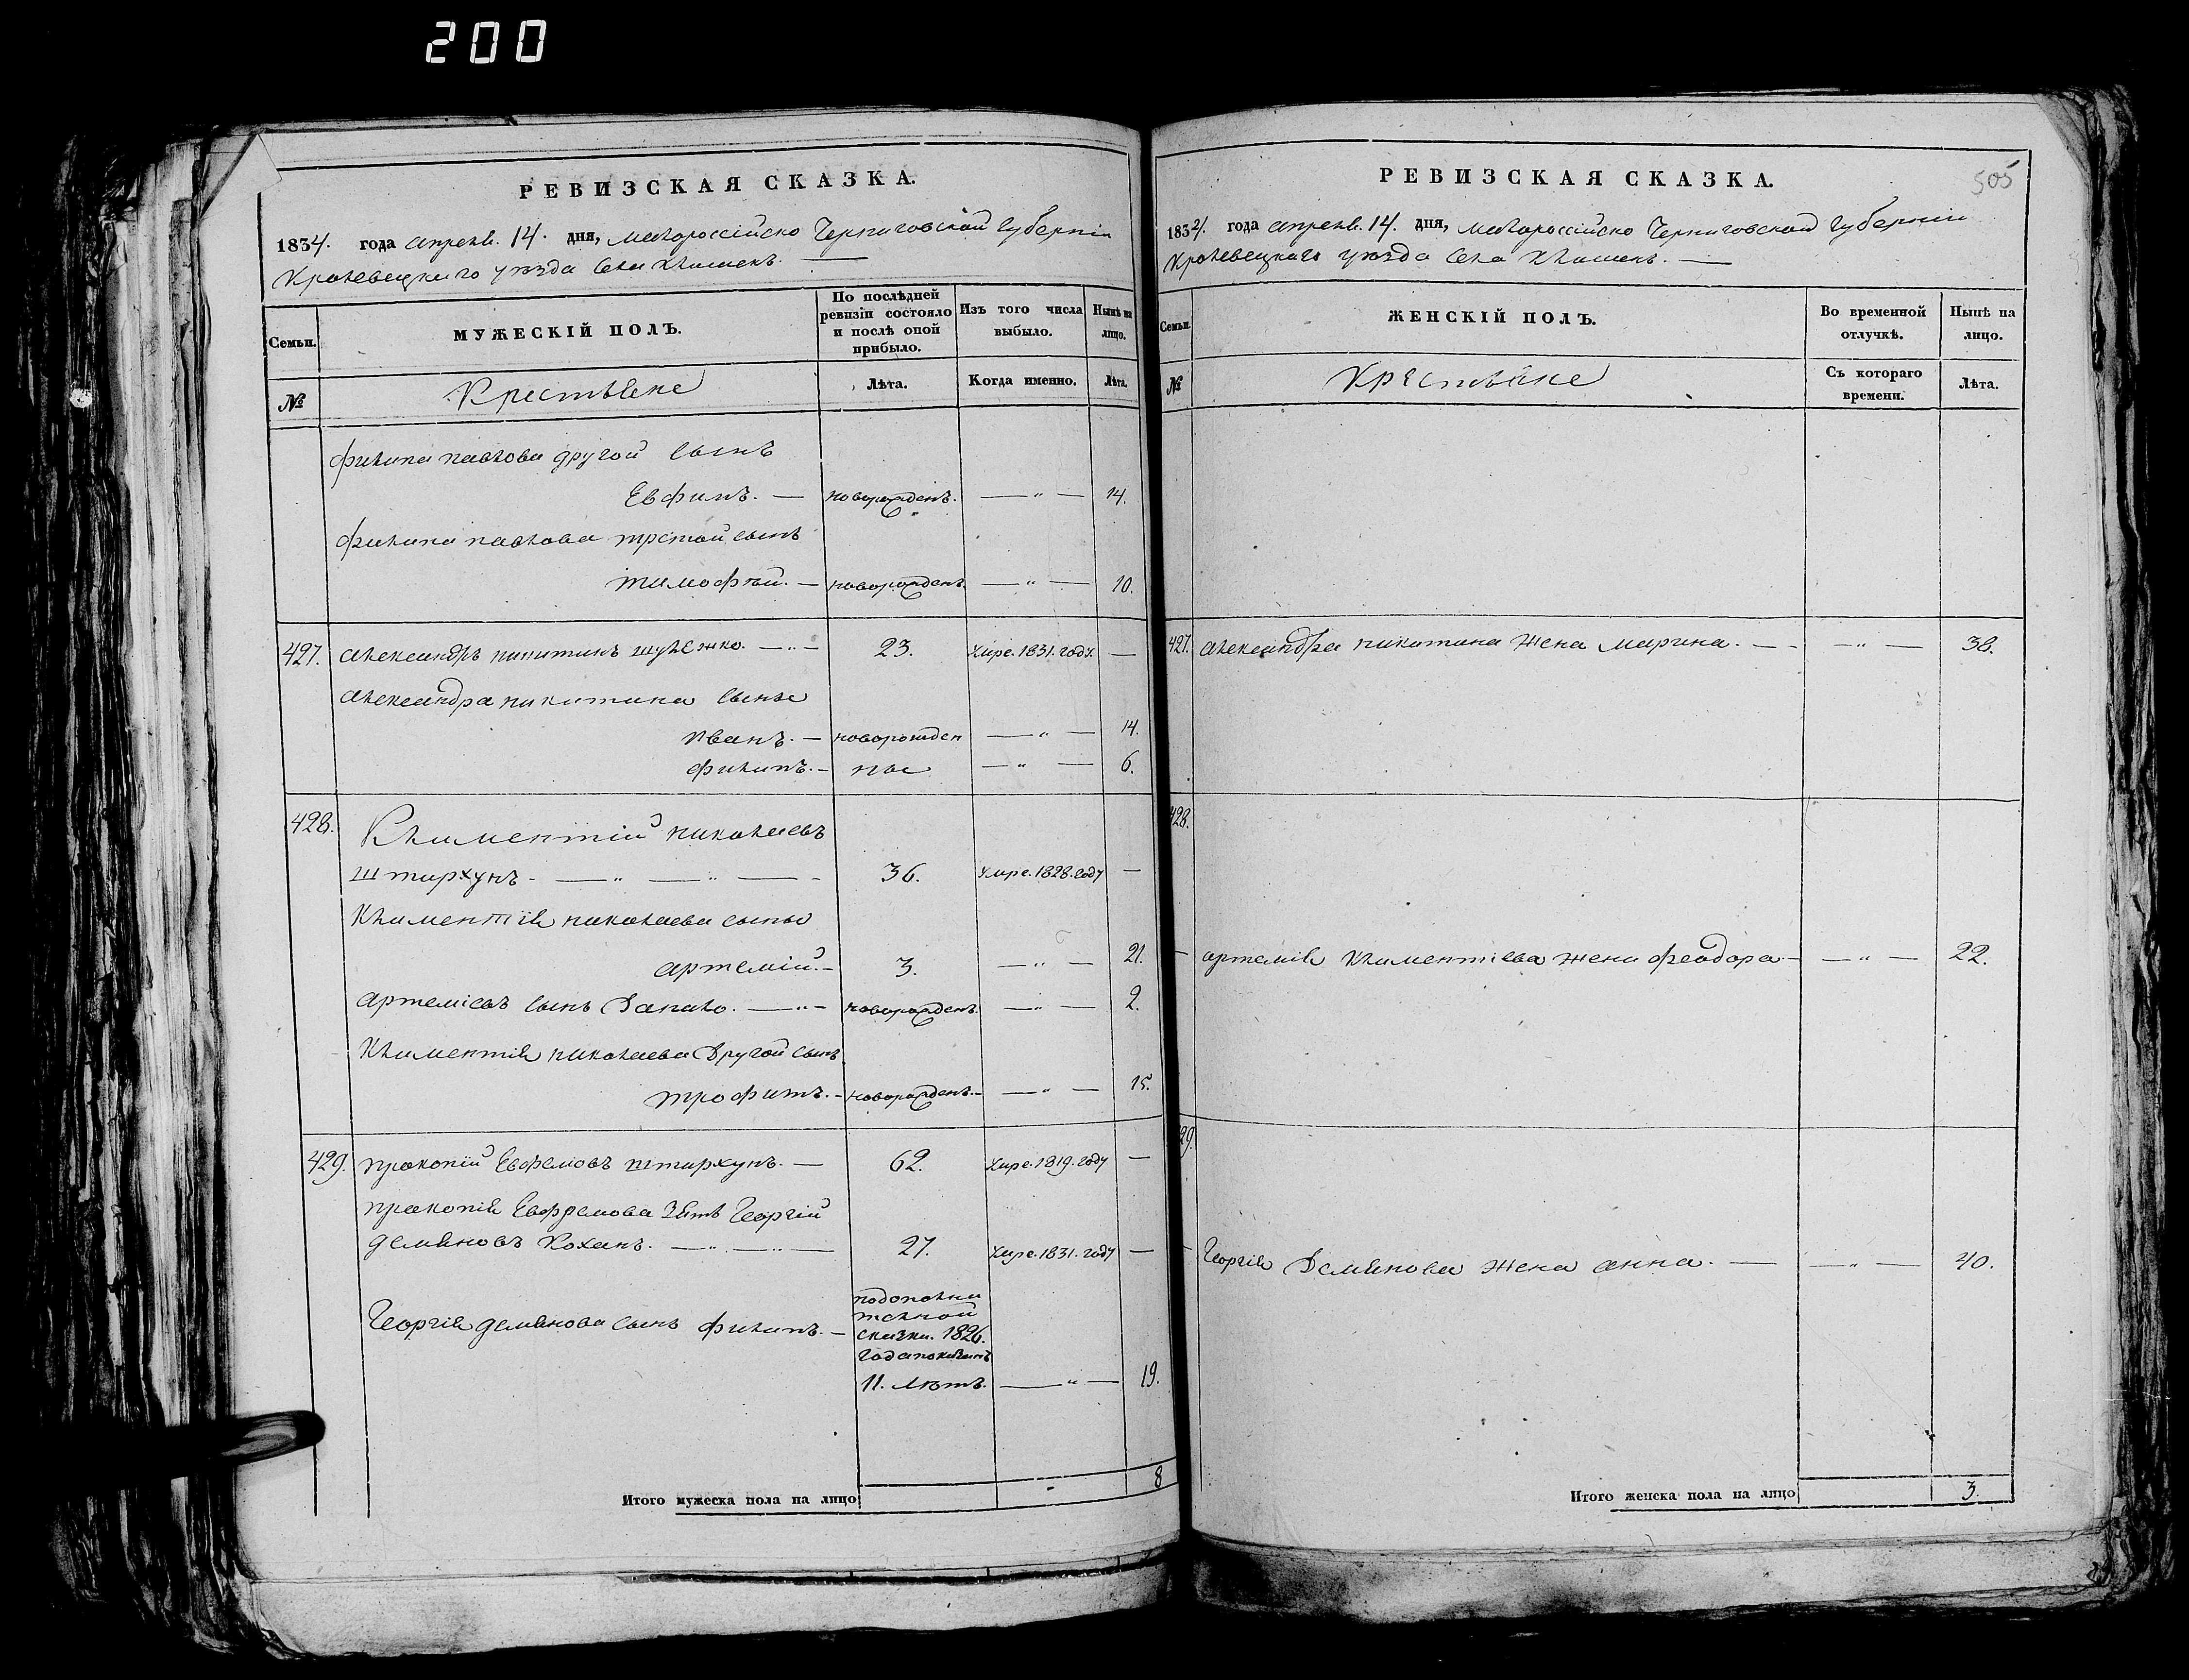 200
РЕВИЗСКАЯ СКАЗКА.
1834. года апреля. 14. дня, малороссійско Черниговской губерніи
Кролевецкого уезда Села Клишекъ.
Семьи. МУЖЕСКІЙ ПОЛЪ. По послѣдней ревизіи состояло и послѣ оной прибыло. Изъ того числа выбыло. Нынѣ на лицо.
№ Крестьяне Лѣта. Когда именно. Лѣта.
филипа павлова другой сынъ
Евфимъ. — новорожденъ. — " — 14.
филипа павлова третой сынъ
тимофѣй. — новорожденъ — " — 10.
427. александръ никитинъ — " — 23. умре. 1831. году. —
александра никитина сынье
иванъ. — новорожден — " — 14.
филипъ. — ные — " — 6.
428. Климентій николаевъ
штархунъ - — " — " — - 36. умре. 1828. году —
Климентія николаева сынье
артемій. — 3. — " — 21.
артеміевъ сынъ Данило. — " — новорожденъ. — " — 2.
Климентія николаева Другой сынъ
трофимъ. - новорожденъ. — " — 15.
429. прокопій Евфемовъ штархунъ. — 62. умре. 1819. году —
прокопія Евфремова зять Георгій
демяновъ Коханъ. — " — " — 27. умре. 1831. году —
Георгія демянова сынъ филипъ. —
подополни
телной
сказки. 1826.
года показанъ
11. лѣтъ. — " — 19.
Итого мужеска пола на лицо 8
РЕВИЗСКАЯ СКАЗКА. 505
1834. года апреля. 14. дня, малороссійско Черниговской губерніи
Кролевецкаго уезда Села Клишекъ. —
Семьи. ЖЕНСКІЙ ПОЛЪ. Во временной отлучкѣ. Нынѣ на лицо.
№ Крестьяне Съ котораго времени. Лѣта.
427. александра никитина жена марина. — - — " — 38.
428.
— артемія Климентіева жена феодора — — " — 22.
29.
— Георгія Демянова жена анна. — — " — 40.
Итого женска пола на лицо 3.